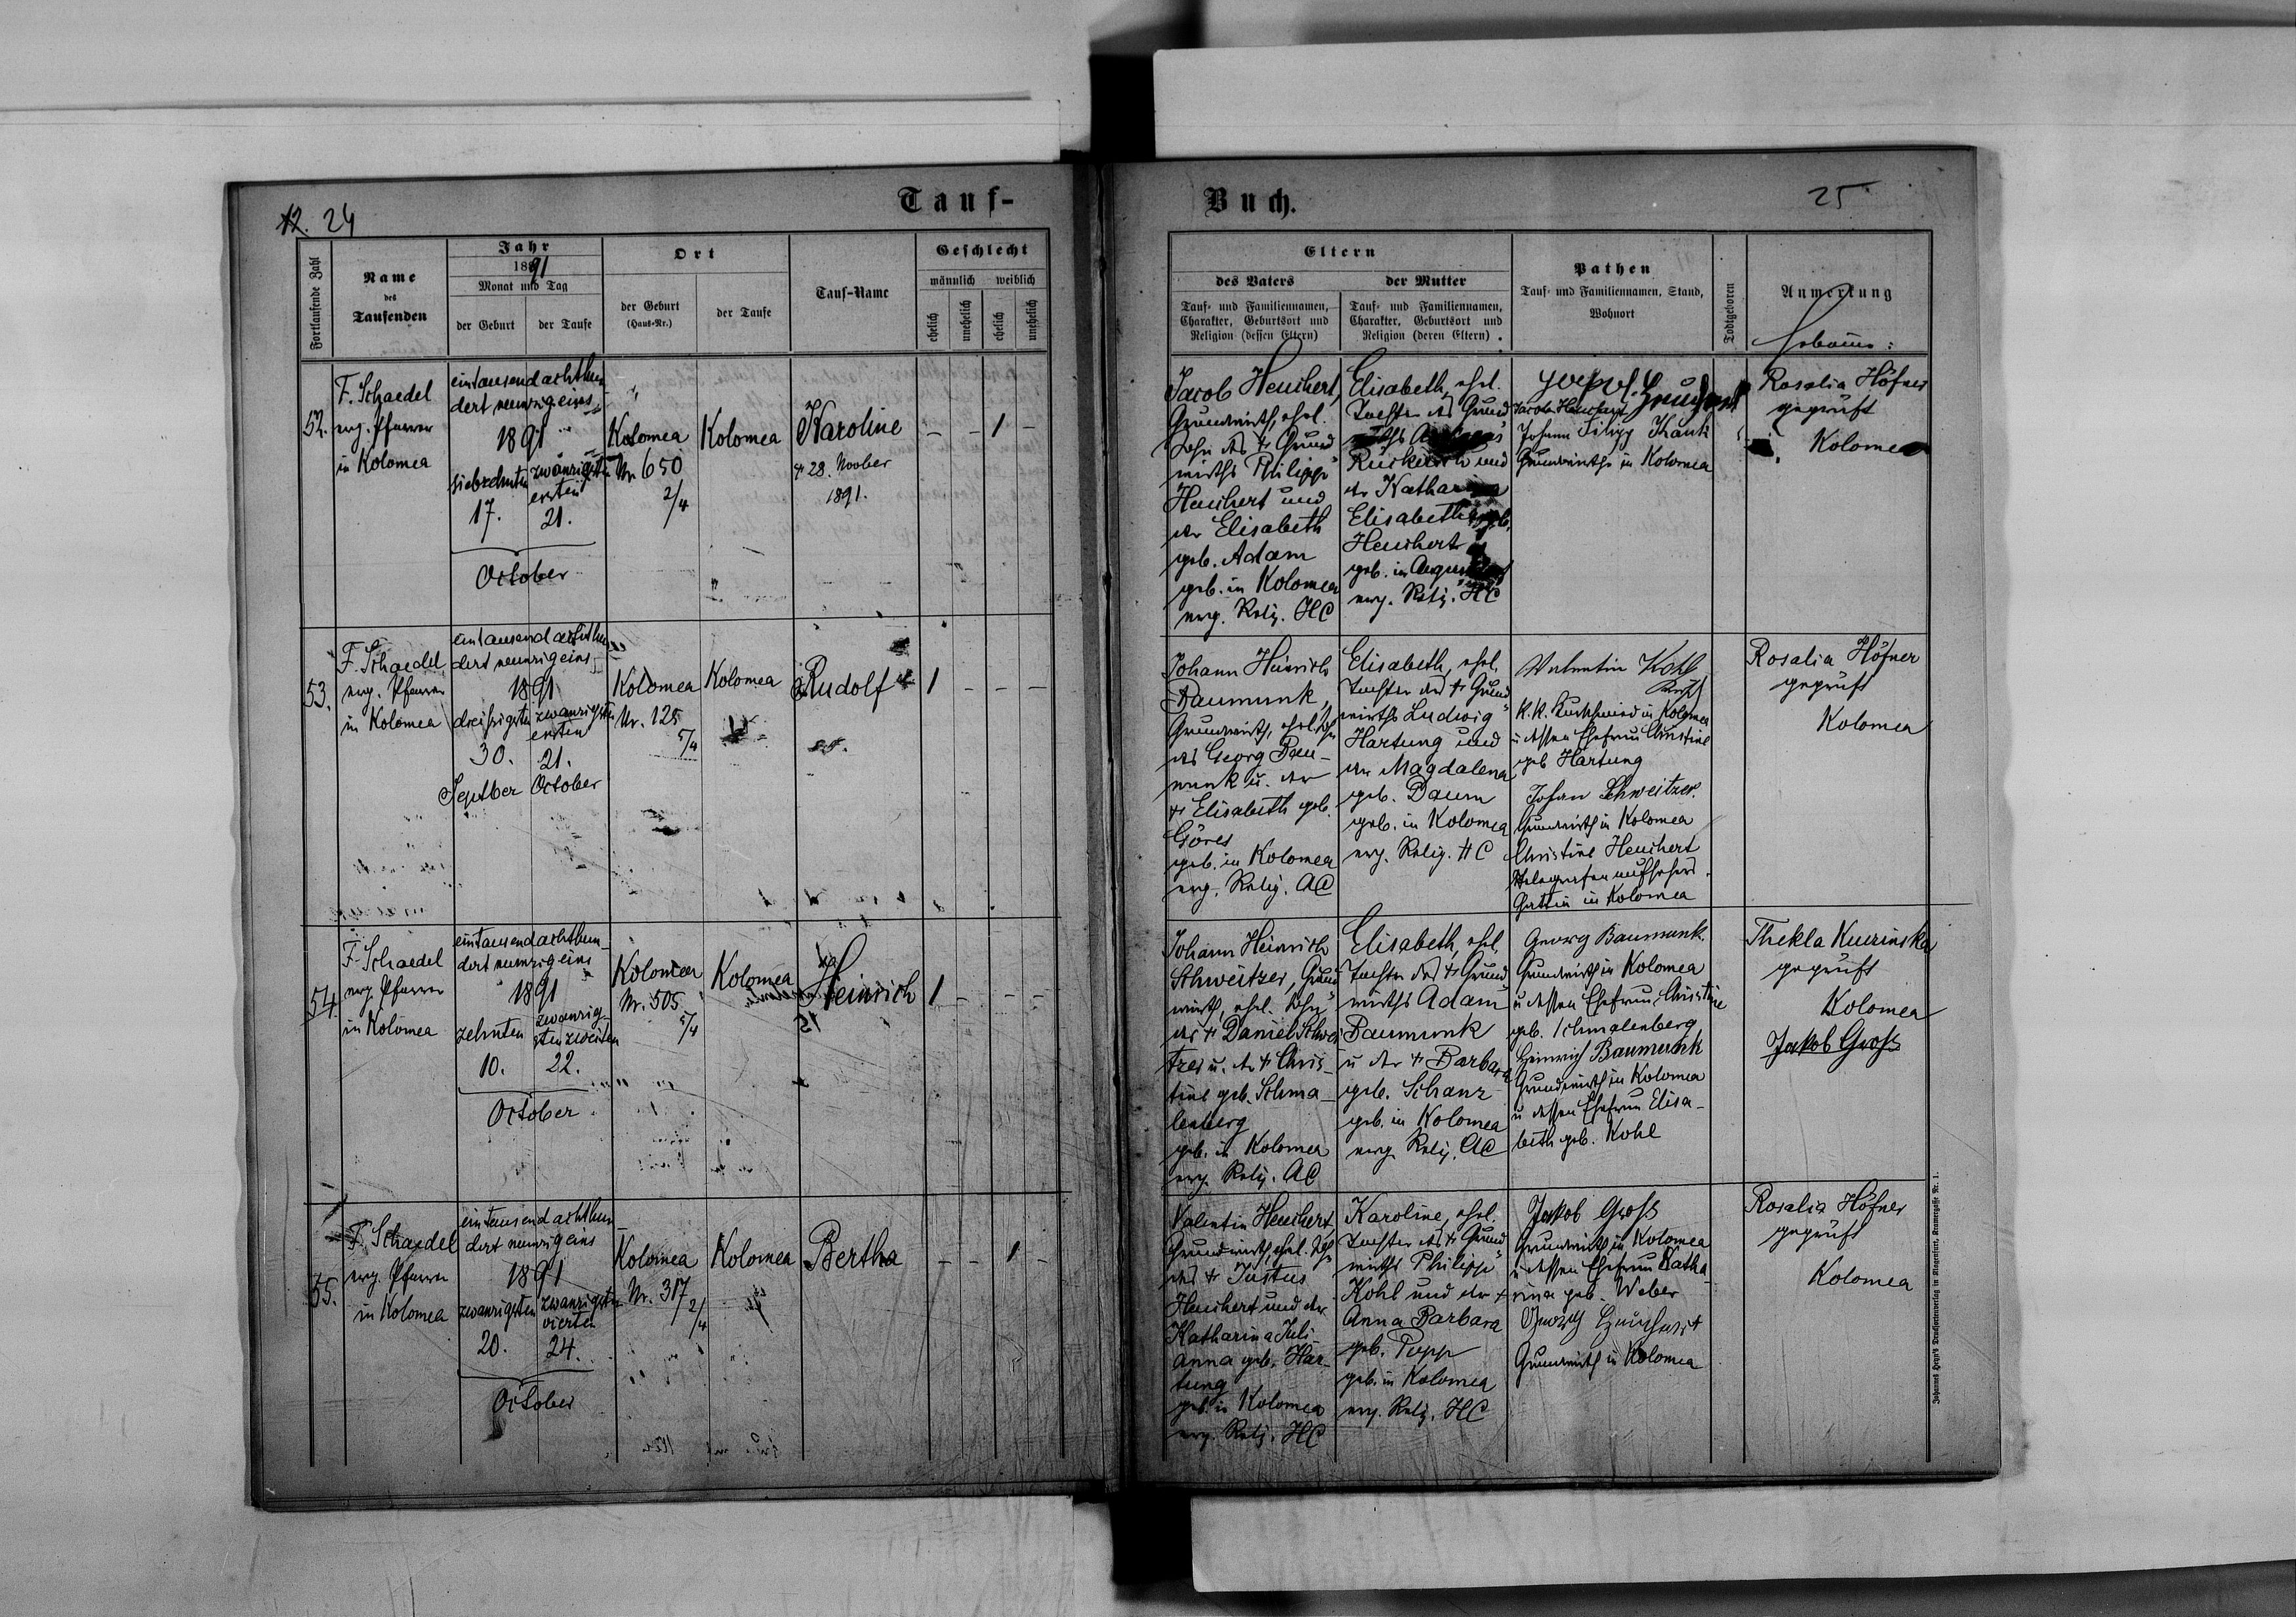 Tauf-
12. 24
Fortlaufende Zahl
Name
des
Taufenden
Jahr
1891
Monat und Tag
der Geburt
der Taufe
Ort
der Geburt
(Haus-Nr.)
der Taufe
Tauf-Name
Geschlecht
männlich
weiblich
ehelich
unehelich
ehelich
unehelich
52.
F. Schaedel
evg. Pfarrer
in Kolomea
eintausendachthun-
dert neunzigeins
1891
siebzehnten
17.
zwanzigsten
ersten
21.
October
Kolomea
Nr. 650
2/4
Kolomea
Karoline
+ 28. Novber
1891.
– – 1 –
53.
F. Schaedel
evg. Pfarrer
in Kolomea
eintausend achthun
dert neunzigeins
1891
dreißigsten
30.
Septber
zwanzigsten
ersten
21.
October
Kolomea
Nr. 125
5/4
Kolomea
Rudolf
1 – – –
54.
F. Schaedel
evg. Pfarrer
in Kolomea
eintausendachthun-
dert neunzigeins
1891
zehnten
10.
zwanzig-
sten zweiten
22.
October
Kolomea
Nr. 505
5/4
Kolomea
Heinrich
1 – – –
55.
F. Schaedel
evg. Pfarrer
in Kolomea
eintausend achthun
dert neunzigeins
1891
zwanzigsten
20.
zwanzigsten
vierten
24.
October
Kolomea
Nr. 317
2/4
Kolomea
Bertha
– – 1 –
Buch.
25
Eltern
des Vaters
Tauf- und Familiennamen,
Charakter, Geburtsort und
Religion (dessen Eltern)
der Mutter
Tauf- und Familiennamen,
Charakter, Geburtsort und
Religion (deren Eltern)
Pathen
Tauf- und Familiennamen, Stand,
Wohnort
Todtgeboren
Anmerkung
Hebamme:
Jacob Heuchert,
Grundwirth, ehel.
Sohn des + Grund
wirths Philipp
Heuchert und
der Elisabeth
geb. Adam
geb. in Kolomea
evg. Relig. HC
Elisabeth, ehel.
Tochter des Grund
und
der Katharina
Elisabetha geb.
Heuchert
geb. in
evg. Relig. HC
Jacob Heuchert
Johann Filipp Kautz
Grundwirthe in Kolomea
Rosalia Höfner
geprüft
Kolomea
Johann Heinrich
Baumunk,
Grundwirth, ehel. Sohn
des Georg Bau-
munk u. der
+ Elisabeth geb.
Göres
geb. in Kolomea
evg. Relig. AC
Elisabeth, ehel.
Tochter des + Grund
wirths Ludwig
Hartung und
der Magdalena
geb. Daum
geb. in Kolomea
evg. Relig. HC
Valentin Kohl
k. k. in Kolomea
u dessen Ehefrau Christine
geb Hartung
Johan Schweitzer.
Grundwirth in Kolomea
Christine Heuchert
Telegrafenaufsehers
Gattin in Kolomea
Rosalia Höfner
geprüft
Kolomea
Johann Heinrich
Schweitzer, Grund
wirth, ehel. Sohn
des + Daniel Schwei
tzer u. der + Chris-
tine geb. Schma-
lenberg
geb. in Kolomea
evg. Relig. AC
Elisabeth, ehel.
Tochter des + Grund
wirths Adam
Baumunk
u der + Barbara
geb. Schanz
geb. in Kolomea
evg. Relig. AC
Georg Baumunk.
Grundwirth in Kolomea
u dessen Ehefrau Christine
geb. Schmalenberg
Heinrich Baumunk
Grundwirth in Kolomea
u dessen Ehefrau Elisa-
beth geb. Kohl
Thekla Kuzinska
geprüft
Kolomea
Jakob Groß
Valentin Heuchert
Grundwirth, ehel. Sohn
des + Justus
Heuchert und der
Katharina Juli-
anna geb. Har-
tung
geb. in Kolomea
evg. Relig. HC
Karoline, ehel.
Tochter des + Grund
wirths Philipp
Kohl und der +
Anna Barbara
geb. Popp
geb. in Kolomea
evg. Relig. HC
Jakob Groß
Grundwirth in Kolomea
u dessen Ehefrau Katha-
rina geb. Weber
Georg Heuchert
Grundwirth in Kolomea
Rosalia Höfner
geprüft
Kolomea
Johannes Heyn's Drucksortenverlag in Klagenfurt, Kramergasse Nr. 1.